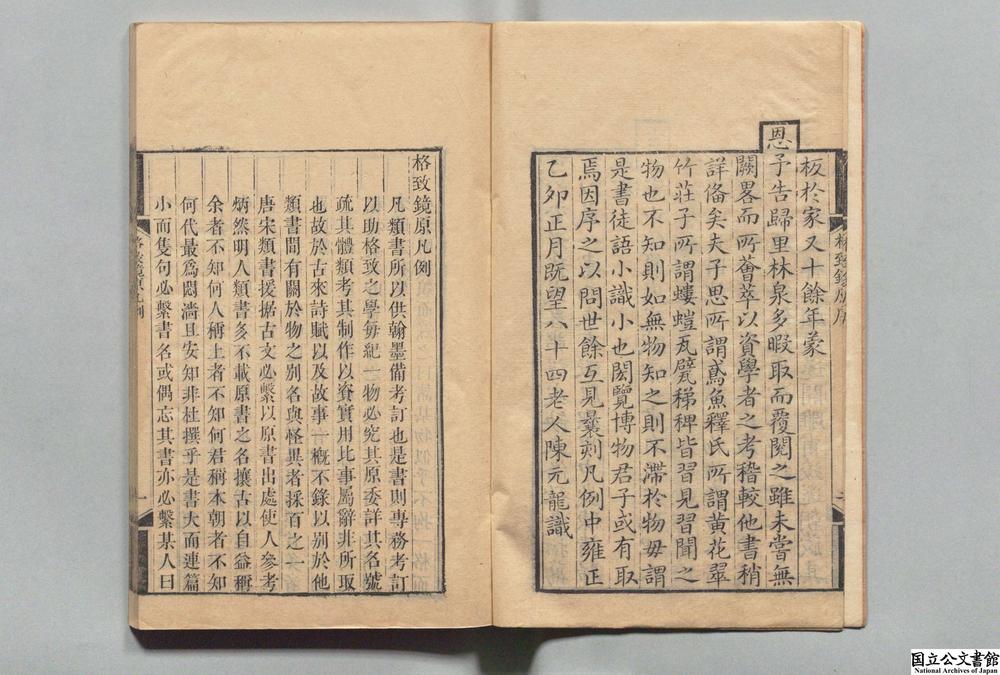 板於家又十餘年蒙
恩予告歸里林泉多暇取而覆閱之雖未嘗無
闕畧而所薈萃以資學者之考稽較他書稍
詳俻矣夫子思所謂鳶魚釋氏所謂黃花翠
竹莊子所謂螻螘瓦甓稊稗皆習見習聞之
物也不知則如無物知之則不滯於物毋謂
是書徒語小識小也閎覽博物君子或有取
焉因序之以問世餘互見曩刻凡例中雍正
乙夘正月既望八十四老人陳元龍識
格致鏡原凡例
凡類書所以供翰墨備考訂也是書則專務考訂
以助格致之學每紀一物必究其原委詳其名號
疏其體類考其制作以資實用比事屬辭非所取
也故於古來詩賦以及故事一槪不錄以別於他
類書間有關於物之別名與怪異者採百之一
唐宋類書援據古文必繫以原書出處使人參考
炳然明人類書多不載原書之名攘古以自益稱
余者不知何人稱上者不知何君稱本朝者不知
何代最爲悶濇且安知非杜撰乎是書大而連篇
小而隻句必繫書名或偶忘其書亦必繫某人曰
格致鏡原凡例
一
国立公文書館
National Archives of Japan